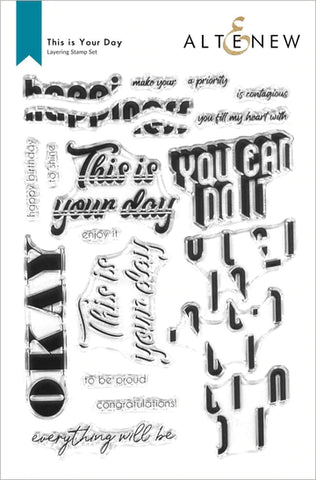 This is Your Day
Layering Stamp Set
ALTENEW
happiness
make your
a priority
is contagious
you fill my heart with
happy birthday
to shine
This is
your day
enjoy it
YOU CAN
DO IT
OKAY
This is
your day
to be proud
congratulations!
everything will be